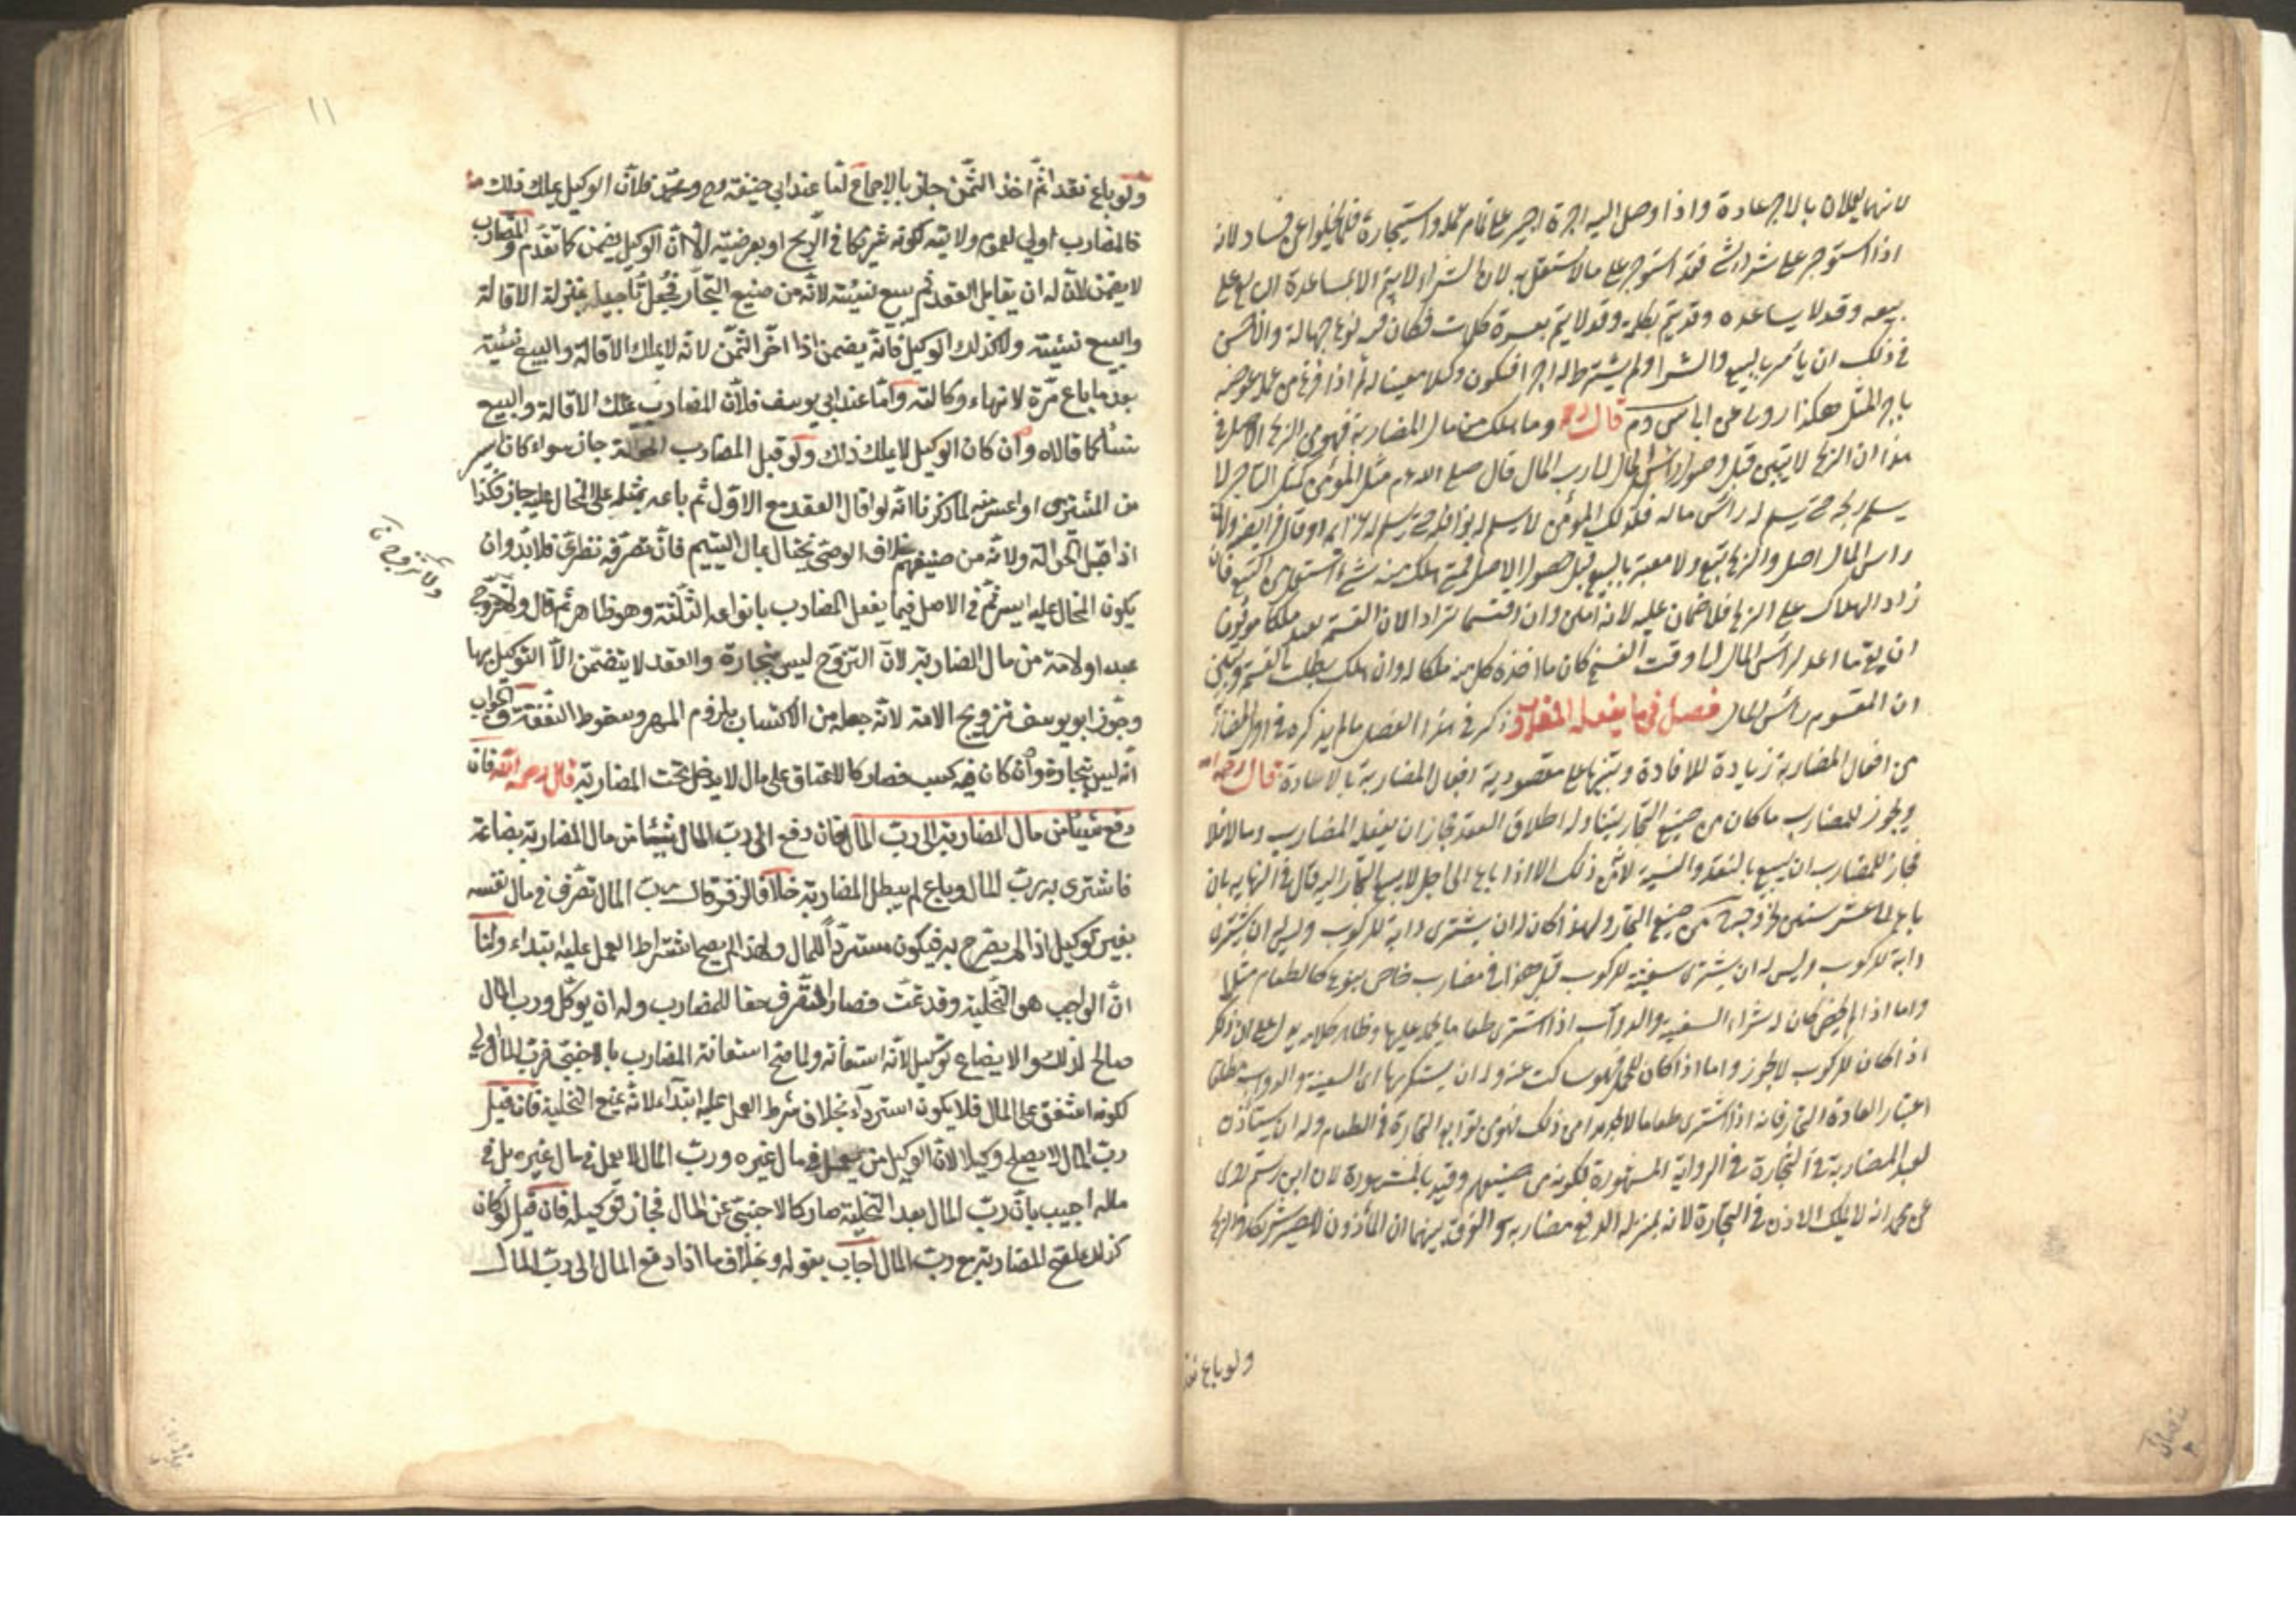 لانهما يعملان بالاجر عادة واذا وصل اليه اجرة اجبر على تمام عمله واستيجاره فلما يخلوا عن فساد لانه
اذا استوجر على شراء شئ فقد استوجر على ما لا يستقل به لان الشراء لا يتم الا بمساعدة البايع على
بيعه وقد لا يساعده وقد يتم بكلمة وقد لا يتم بعشرة كلمات فكان فيه نوع جهالة والاحسن
في ذلك ان يأمر بالبيع والشرا ولم يشترط له اجرا فيكون وكيلا معينا له ثم اذا فرغ من عمله عوضه
باجر المثل هكذا روى عن ابي س وم قال رحمه وما هلك من مال المضاربة فهو من الربح الاصل في
هذا ان الربح لا يتبين قبل وصول رأس المال لرب المال قال صلى الله عم مثل المؤمن كمثل التاجر لا
يسلم ربحه حتى يسلم له رأس ماله فكذلك المؤمن لا يسلم له نوافله حتى يسلم له عزايمه او قال فرايضه ولان
راس المال اصل والربح تبع ولا معتبر بالتبع قبل حصول الاصل فمتى هلك منه شئ استكمل من التبع فان
زاد الهلاك على الربح فلا ضمان عليه لانه امين وان اقتسما ترادا لان القسمة تفيد ملكا موقوفا
ان بقى ما اعد لرأس المال الى وقت الفسخ كان ما اخذه كل منهما ملكا له وان هلك بطلت القسمة وتبين
ان المقسوم رأس المال فصل فيما يفعله المضارب ذكر في هذا الفصل ما لم يذكره في اول المضاربة
من افعال المضاربة زيادة للافادة وتنبيها على مقصودية افعال المضاربة بالاعادة قال رحمه الله
ويجوز للمضارب ما كان من صنيع التجار يتناوله اطلاق العقد فجاز ان يفعله المضارب وما لا فلا
فجاز للمضارب ان يبيع بالنقد والنسية لان كل ذلك الا اذا باع الى اجل لا يبيع التجار اليه قال في النهاية بان
باع الى عشر سنين لخروجه من صنيع التجار ولهذا كان له ان يشترى دابة للركوب وليس له ان يشترى
دابة للركوب وليس له ان يشترى سفينة للركوب قيل هذا في مضارب خاص بنوع كالطعام مثلا
واما اذا لم يخص كان له شراء السفينة والدوآب اذا اشترى طعاما يحمله عليها وظاهر كلامه يدل على ان ذكر
اذا كان للركوب لا يجوز واما اذا كان للحمل فهو ساكت عنه وله ان يستكريها اى السفينة والدواب مطلقا
اعتبارا لعادة التجار فانه اذا اشترى طعاما لا يجد بدا من ذلك فهو من توابع التجارة في الطعام وله ان يستأذن
لعبد المضاربة في التجارة في الرواية المشهورة لكونه من صنيعهم وقيد بالمشهورة لان ابن رستم روى
عن محمد انه لا يملك الاذن في التجارة لانه بمنزلة الدفع مضاربة والفرق بينهما ان المأذون لا يصير شريكا في الربح
ولو باع نقد
١١
ولو باع نقدا ثم اخذ الثمن جاز بالاجماع اما عند ابي حنيفة رح ومحمد فلان الوكيل يملك ذلك
فالمضارب اولى لعموم ولايته كونه شريكا في الربح او بعرضيته الا ان الوكيل يضمن كما تقدم والمضارب
لا يضمن لان له ان يقايل العقد ثم يبيع نسيئة لانه من صنيع التجار فجعل تأجيله بمنزلة الاقالة
والبيع نسيئة ولا كذلك الوكيل فانه يضمن اذا اخر الثمن لانه لا يملك الاقالة والبيع نسيئة
بعد ما باع مرة لانتهاء وكالته واما عند ابي يوسف فلان المضارب يملك الاقالة والبيع
نسأ كما قالاه وان كان الوكيل لا يملك ذلك ولو قبل المضارب الحوالة جاز سواء كان ايسر
من المشترى او اعسر منه لما ذكرنا انه لو اقال العقد مع الاول ثم باعه بمثله على المحال عليه جاز فكذا
اذا قبل الحوالة ولانه من صنيعهم بخلاف الوصى يحتال بمال اليتيم فان تصرفه نظرى فلا بد وان
يكون المحال عليه ايسر ثم في الاصل فيما يفعل المضارب بانواعه الثلثة وهو ظاهر ثم قال ولا يزوج
ولا يزوج
عبدا ولا امة من مال المضاربة لان التزوج ليس بتجارة والعقد لا يتضمن الا التوكيل بها
وجوز ابو يوسف تزويج الامة لانه جعله من الاكتساب بلزوم المهر وسقوط النفقة والجواب
انه ليس بتجارة وان كان فيه كسب فصار كالاعتاق على مال لا يدخل تحت المضاربة قال رحمه الله فان
دفع شيئا من مال المضاربة الى رب المال فان دفع الى رب المال شيئا من مال المضاربة بضاعة
فاشترى به رب المال وباع لم يبطل المضاربة خلافا لزفر قال رب المال تصرف في مال نفسه
بغير توكيل اذا لم يصرح به فيكون مستردا للمال ولهذا لم يصح اشتراط العمل عليه ابتداء ولنا
ان الواجب هو التخلية وقد تمت فصار التصرف حقا للمضارب وله ان يوكل ورب المال
صالح لذلك والابضاع توكيل لانه استعانة ولما صح استعانة المضارب بالاجنبى فرب المال اولى
لكونه اشفق على المال فلا يكون استردآدا بخلاف شرط العمل عليه ابتدآء لانه يمنع التخلية فان قيل
رب المال لا يصلح وكيلا لان الوكيل من يعمل في مال غيره ورب المال لا يعمل في مال غيره بل في
ماله اجيب بان رب المال بعد التخلية صار كالاجنبى عن المال فجاز توكيله فان قيل لو كان
كذلك لصح المضاربة مع رب المال اجاب بقوله وبخلاف ما اذا دفع المال الى رب المال